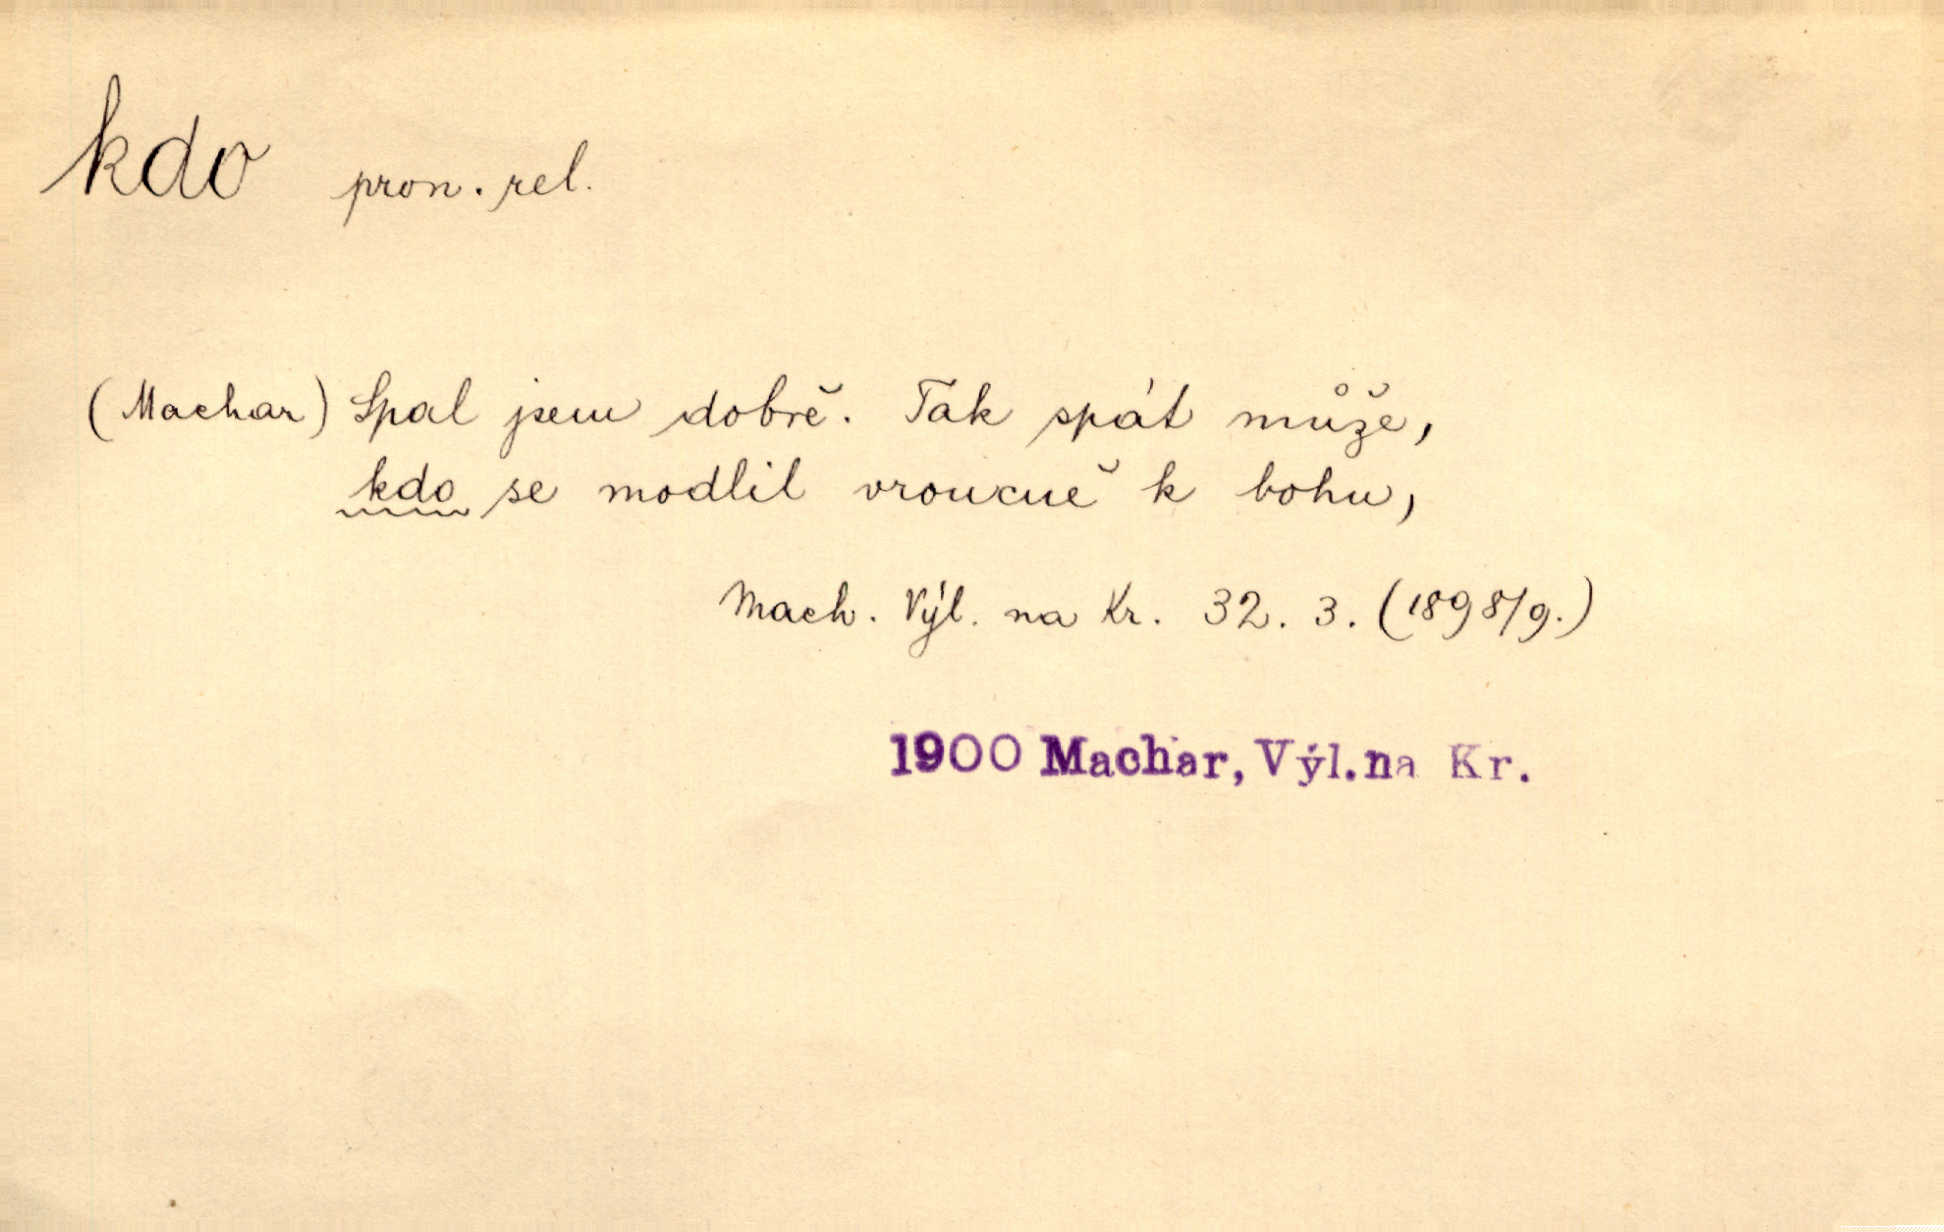 kdo pron. rel.
(Machar) Spal jsem dobrě. Tak spát může,
kdo se modlil vroucně k bohu,
Mach. Výl. na Kr. 32. 3. (1898/9.)
1900 Machar, Výl.na Kr.